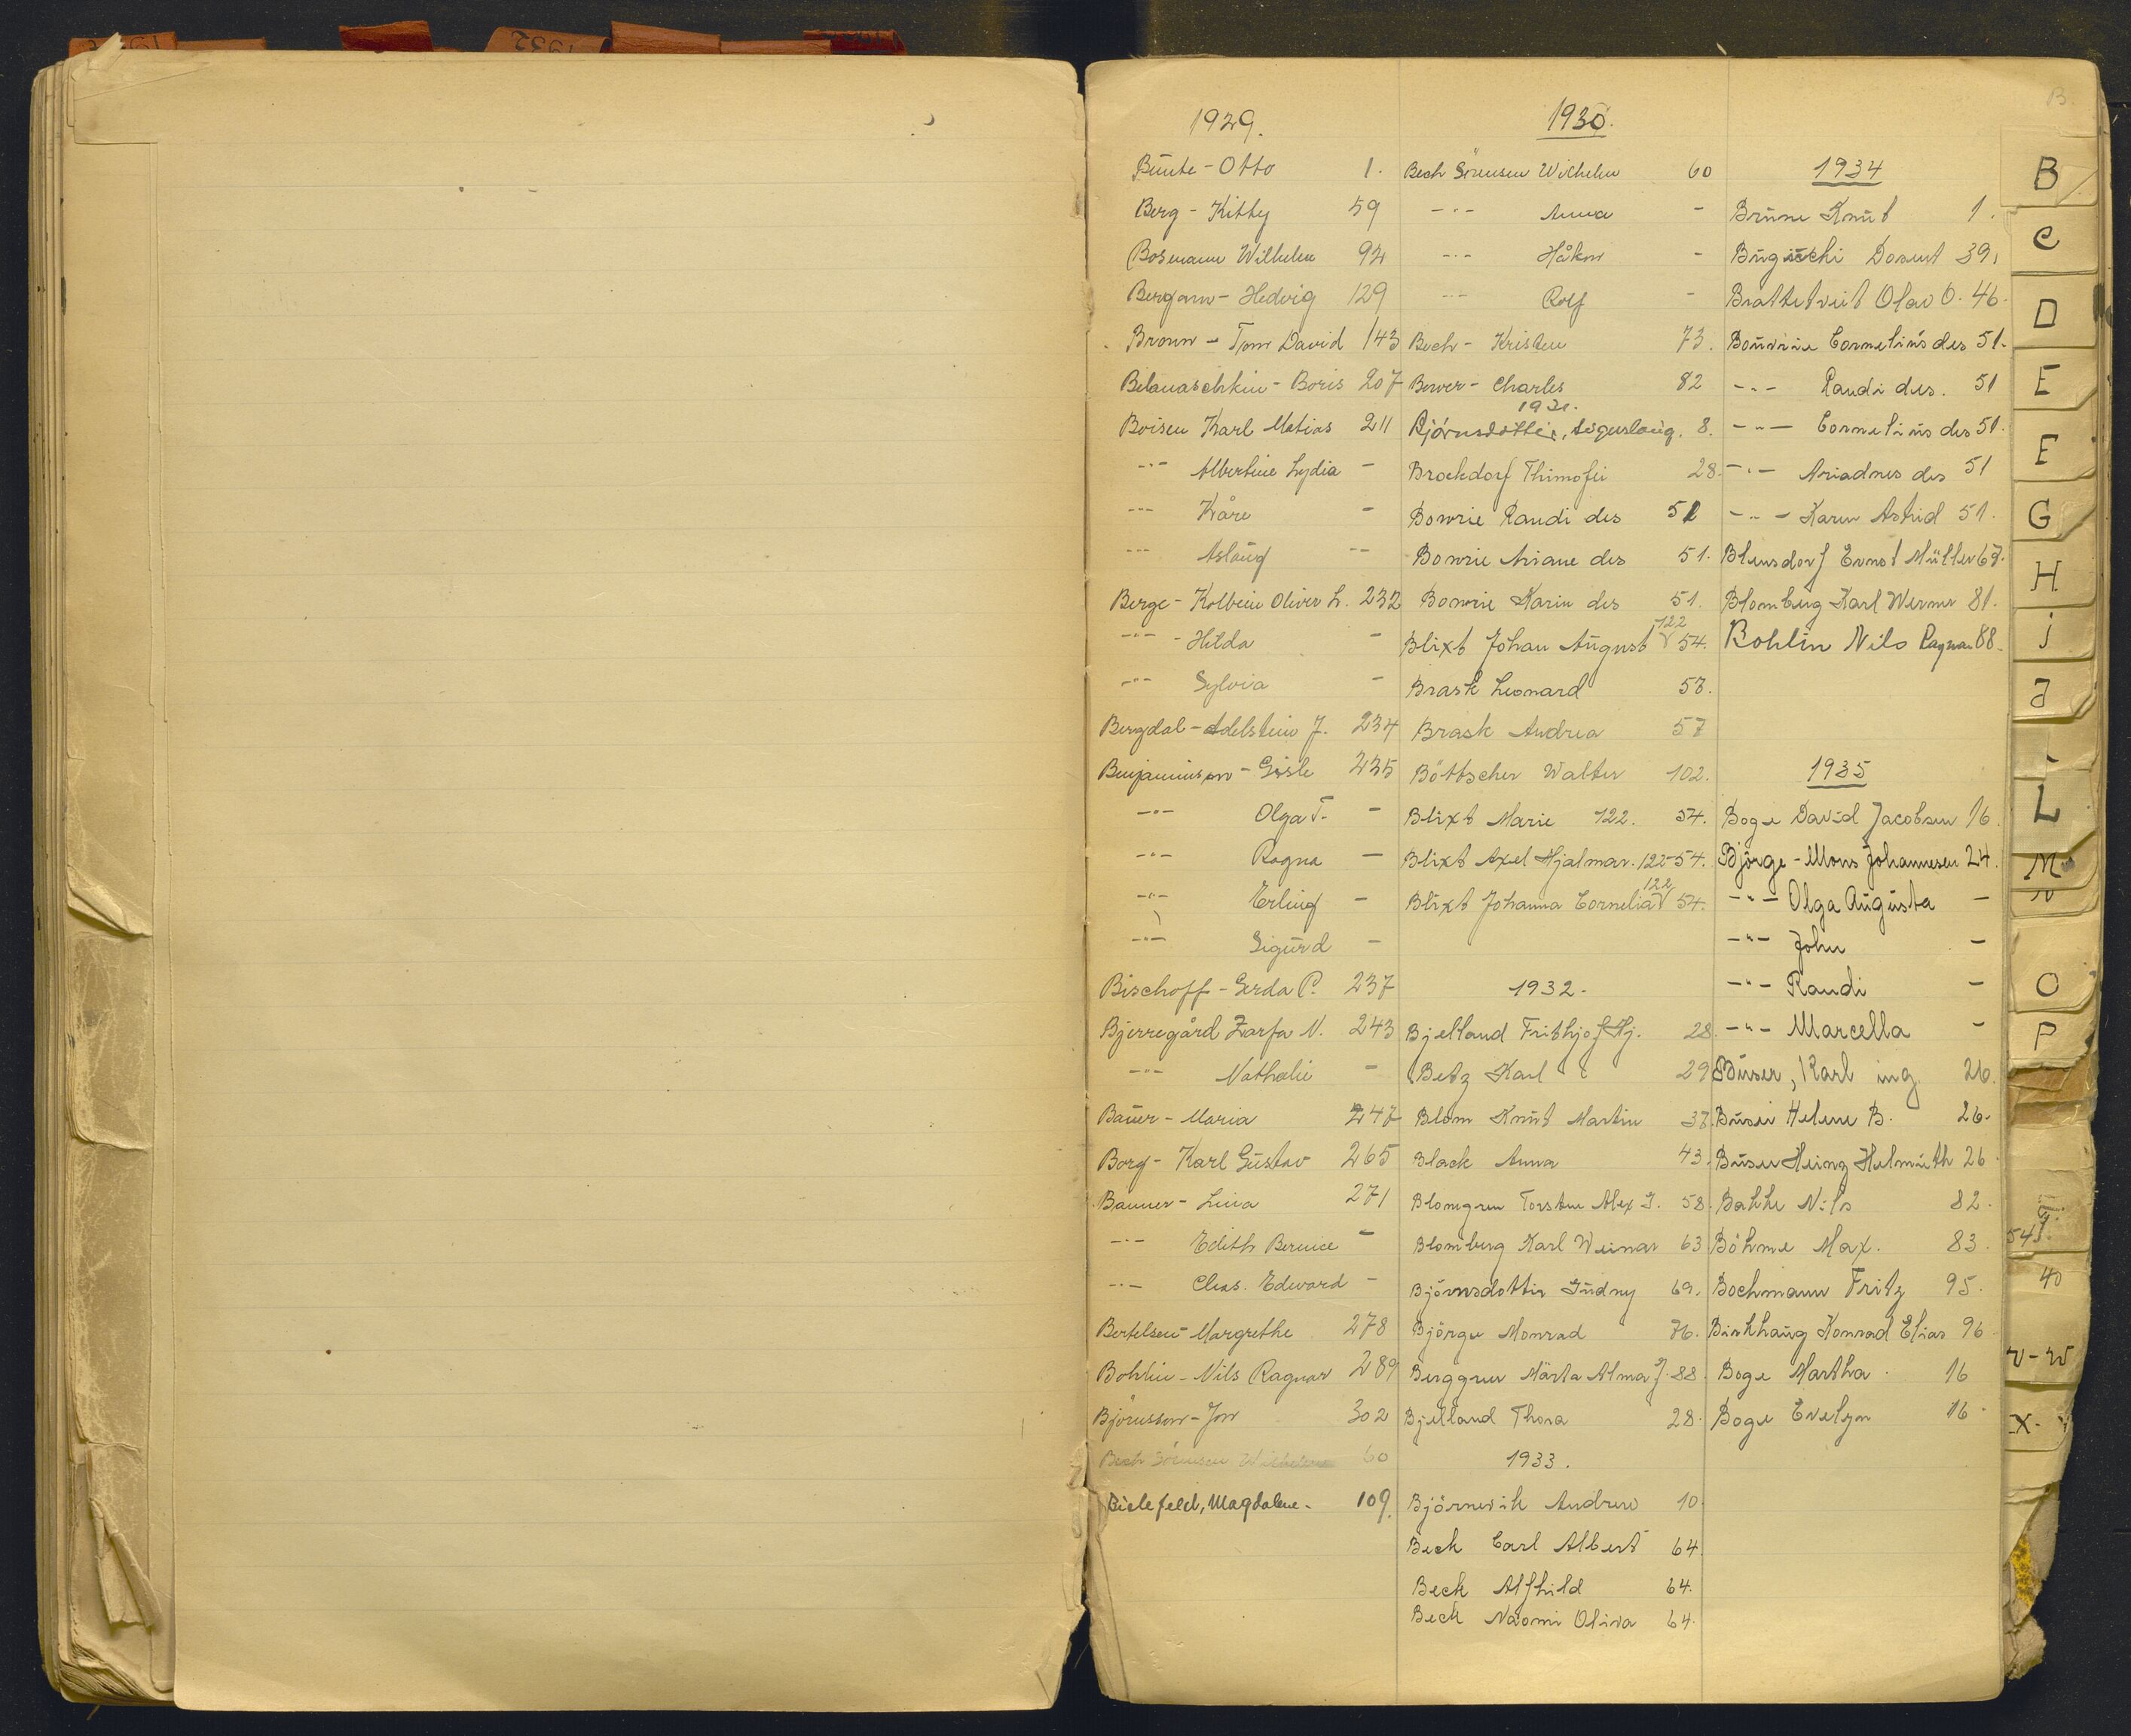 1932
B.
1929.
Bünte - Otto 1.
Berg - Kitty 59
Bosmann Wilhelm 92
Bergann - Hedvig 129
Bronn - Tom David 143
Belanaschkin - Boris 207
Boisen Karl Matias 211
-"- Albertine Lydia -
-"- Kåre -
-"- Aslaug -
Berge - Kolbein Oliver L. 232
-"- Hilda -
-"- Sylvia -
Bergdal - Adelstein J. 234
Benjaminson - Gisle 235
-"- Olga T. -
-"- Ragna -
-"- Erling -
-"- Sigurd -
Bischoff - Gerda P. 237
Bjerregård Zarfa N. 243
-"- Nathalie -
Baüer - Maria 247
Borg - Karl Gustav 265
Banner - Lina 271
-"- Edith Bernice -
-"- Chas. Edward -
Bertelsen Margrethe 278
Bohlin - Nils Ragnar 289
Björnsson - Jon 302
Bech Sörensen Wilhelm 60
Bielefeld, Magdalene. 109.
1930.
Bech Sörensen Wilhelm 60
-"- Anna -
-"- Håkon -
-"- Rolf -
Bech - Kristen 73.
Bower - Charles 82
1931.
Björnsdottir, Sigurlaug. 8.
Brockdorf Thimofei 28.
Bowrie Randi des 51
Bowrie Ariane des 51.
Bowrie Karin des 51.
Blixt Johan August 122 54.
Brask Leonard 57.
Brask Andrea 57
Böttscher Walter 102.
Blixt Marie 122. 54.
Blixt Axel Hjalmar. 122-54.
Blixt Johanna Cornelia 122 54.
1932.
Bjelland Frithjof Hj. 28.
Betz Karl 29
Blom Knut Martin 37.
Black Anna 43.
Blomgren Torsten Alex J. 58.
Blomberg Karl Weinar 63
Björnsdottir Gudny 69.
Björge Monrad 76.
Berggren Märta Alma J. 88.
Bjelland Thora 28.
1933.
Björnevik Andrew 10.
Beck Carl Albert 64.
Beck Alfhild 64.
Beck Naomi Oliva 64.
1934
Brüne Knut 1.
Bugischi Dosent 39.
Brattetveit Olav O. 46.
Bouvrie Cornelius des 51.
-"- Randi des. 51
-"- Cornelius des 51.
-"- Ariadnes des 51
-"- Karen Astrid 51.
Blensdorf Ernst Müller 67.
Blomberg Karl Werner 81.
Bohlin Nils Ragnar 88.
1935
Boge David Jacobsen 16.
Björge - Mons Johannesen 24.
-"- Olga Augusta -
-"- John -
-"- Randi -
-"- Marcella -
Büser, Karl ing. 26.
Büser Helene B. 26.
Büser Heinz Helmuth 26
Bakke Nils 82.
Böhme Max. 83.
Bochmann Fritz 95.
Birkhaug Konrad Elias 96
Boge Martha 16
Boge Evelyn 16
B
C
D
E
F
G
H
i
J
L
M
N
O
P
54
40
V-W
X-